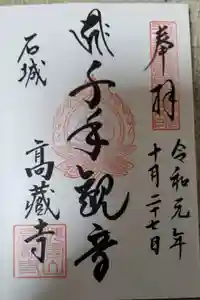 奉拝
令和元年
十月二十七日
千手観音
石城
高蔵寺